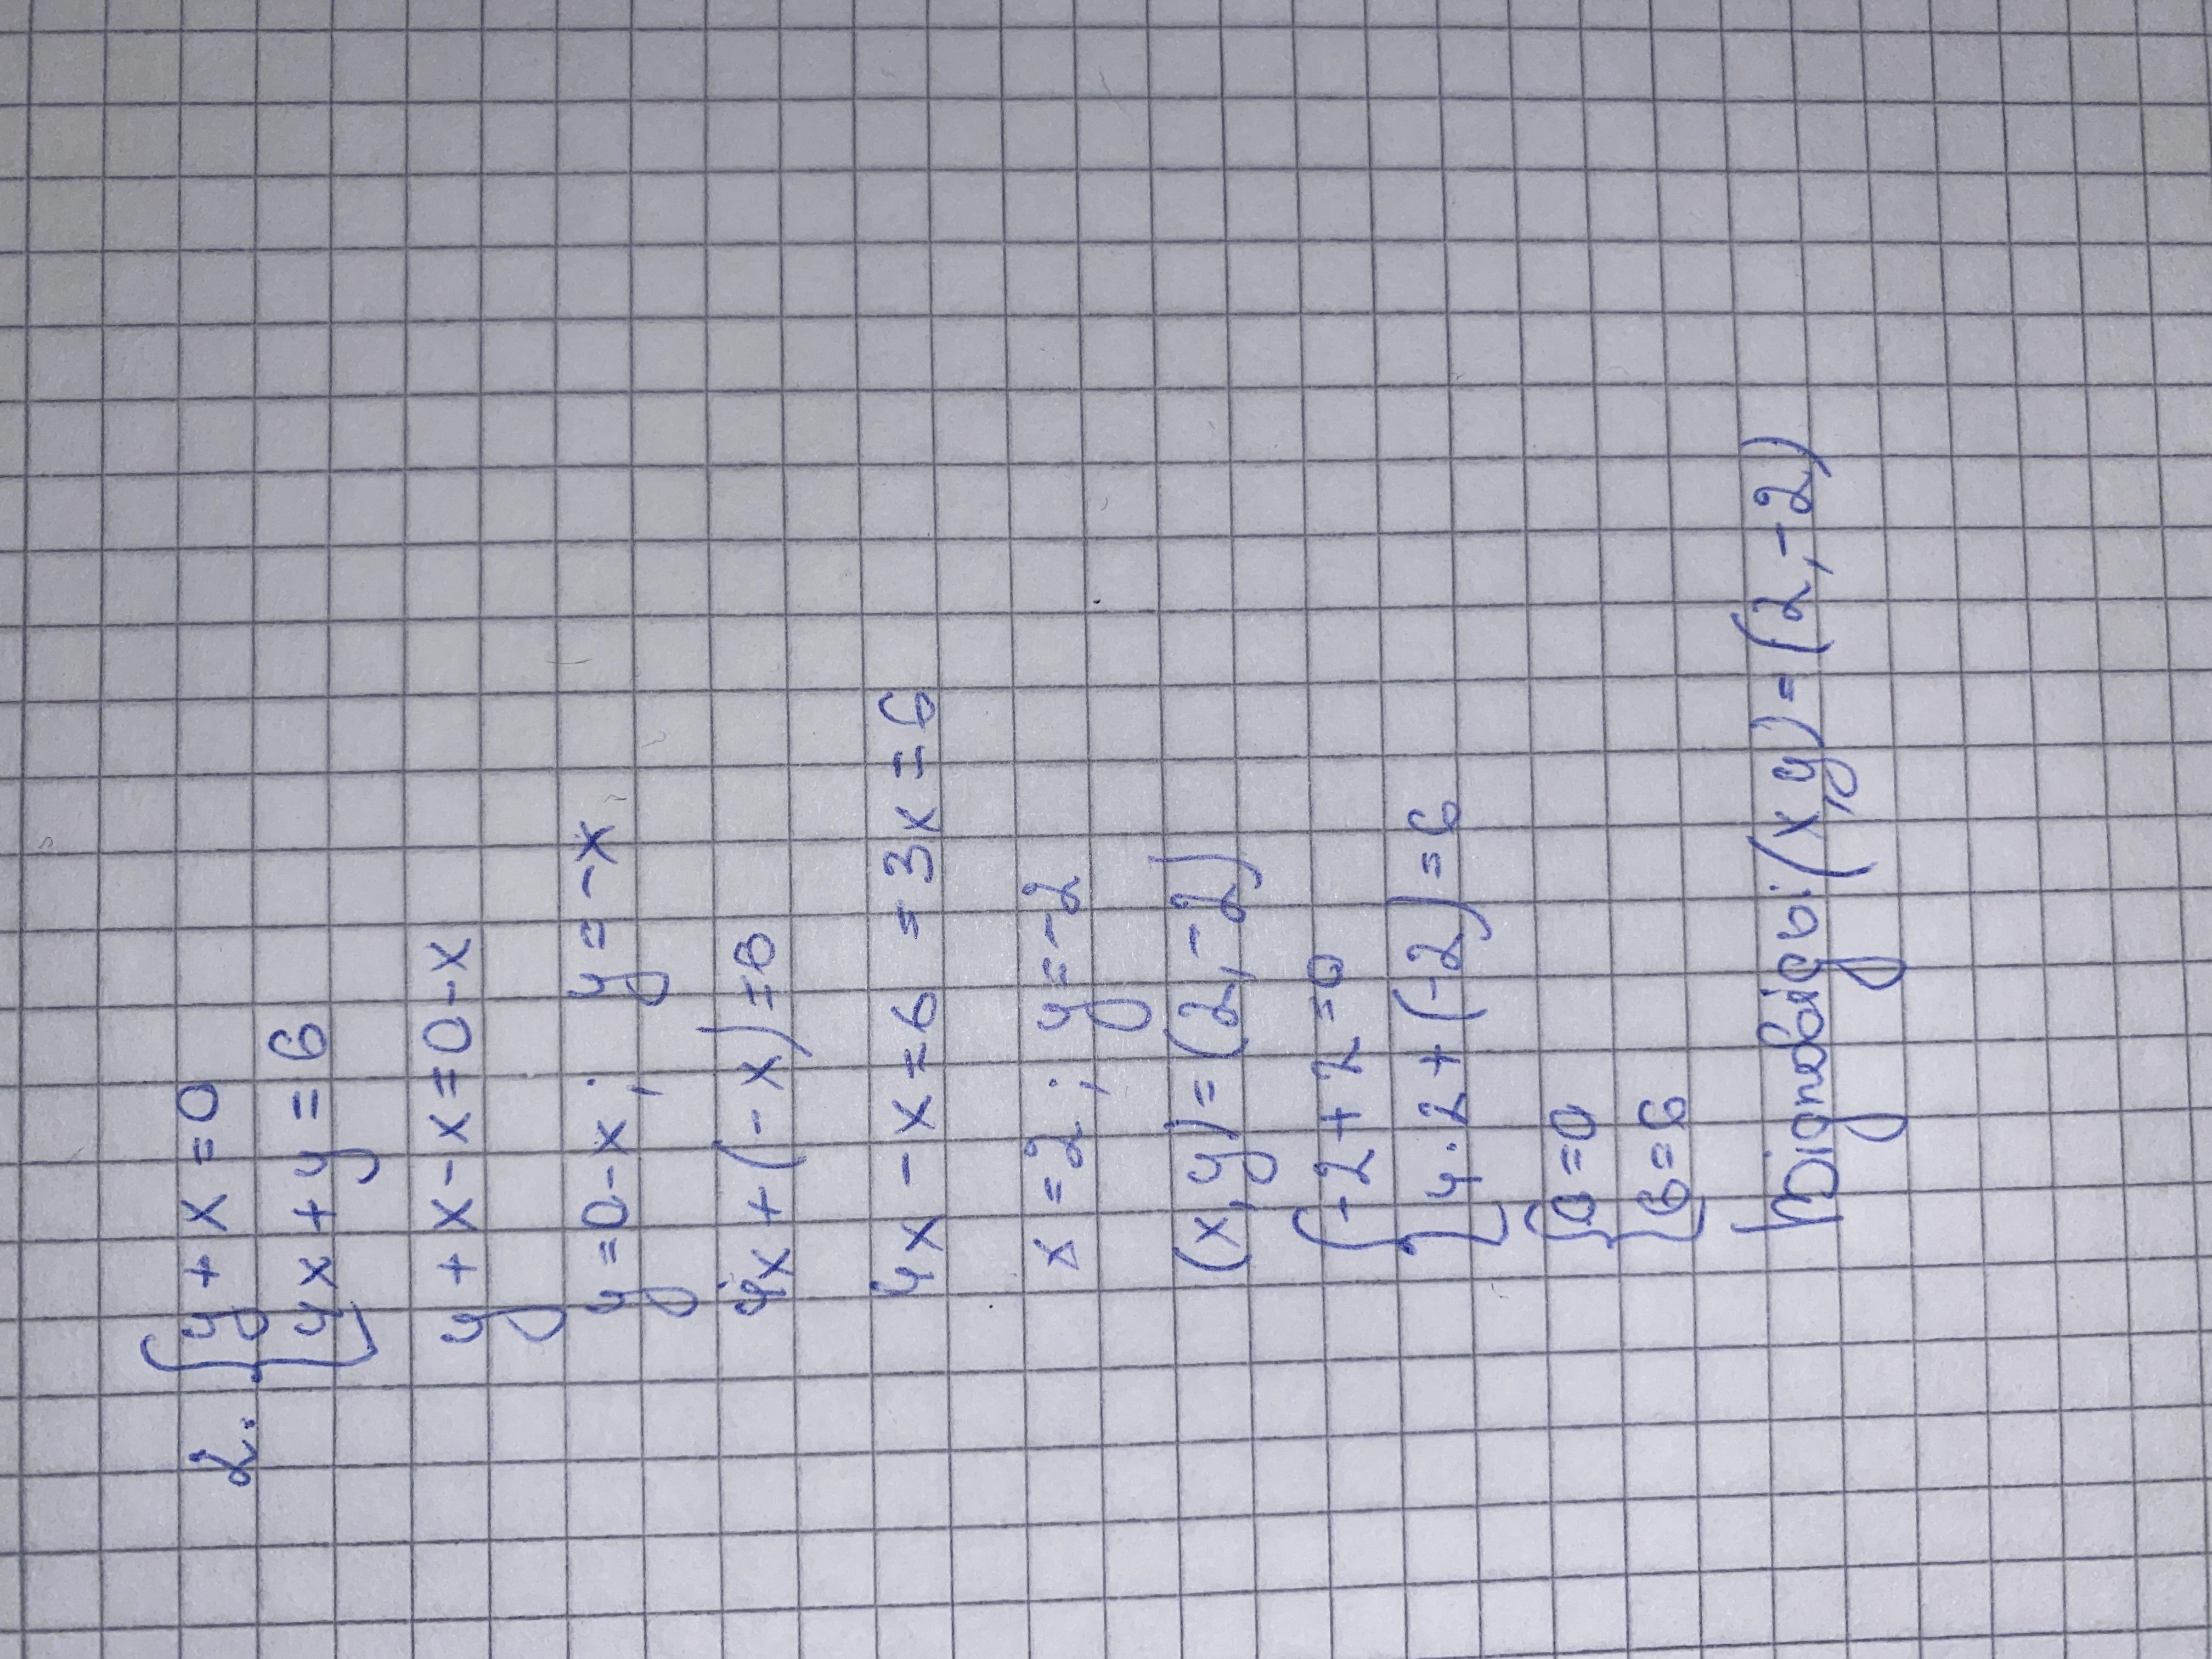 2. { y + x = 0
4x + y = 6
y + x - x = 0 - x
y = 0 - x ; y = - x
4x + (- x) = 6
4x - x = 6 = 3x = 6
x = 2 ; y = -2
(x, y) = (2, -2)
{ -2 + 2 = 0
4 · 2 + (-2) = 6
{ 0 = 0
6 = 6
Відповідь: (x, y) = (2, -2)